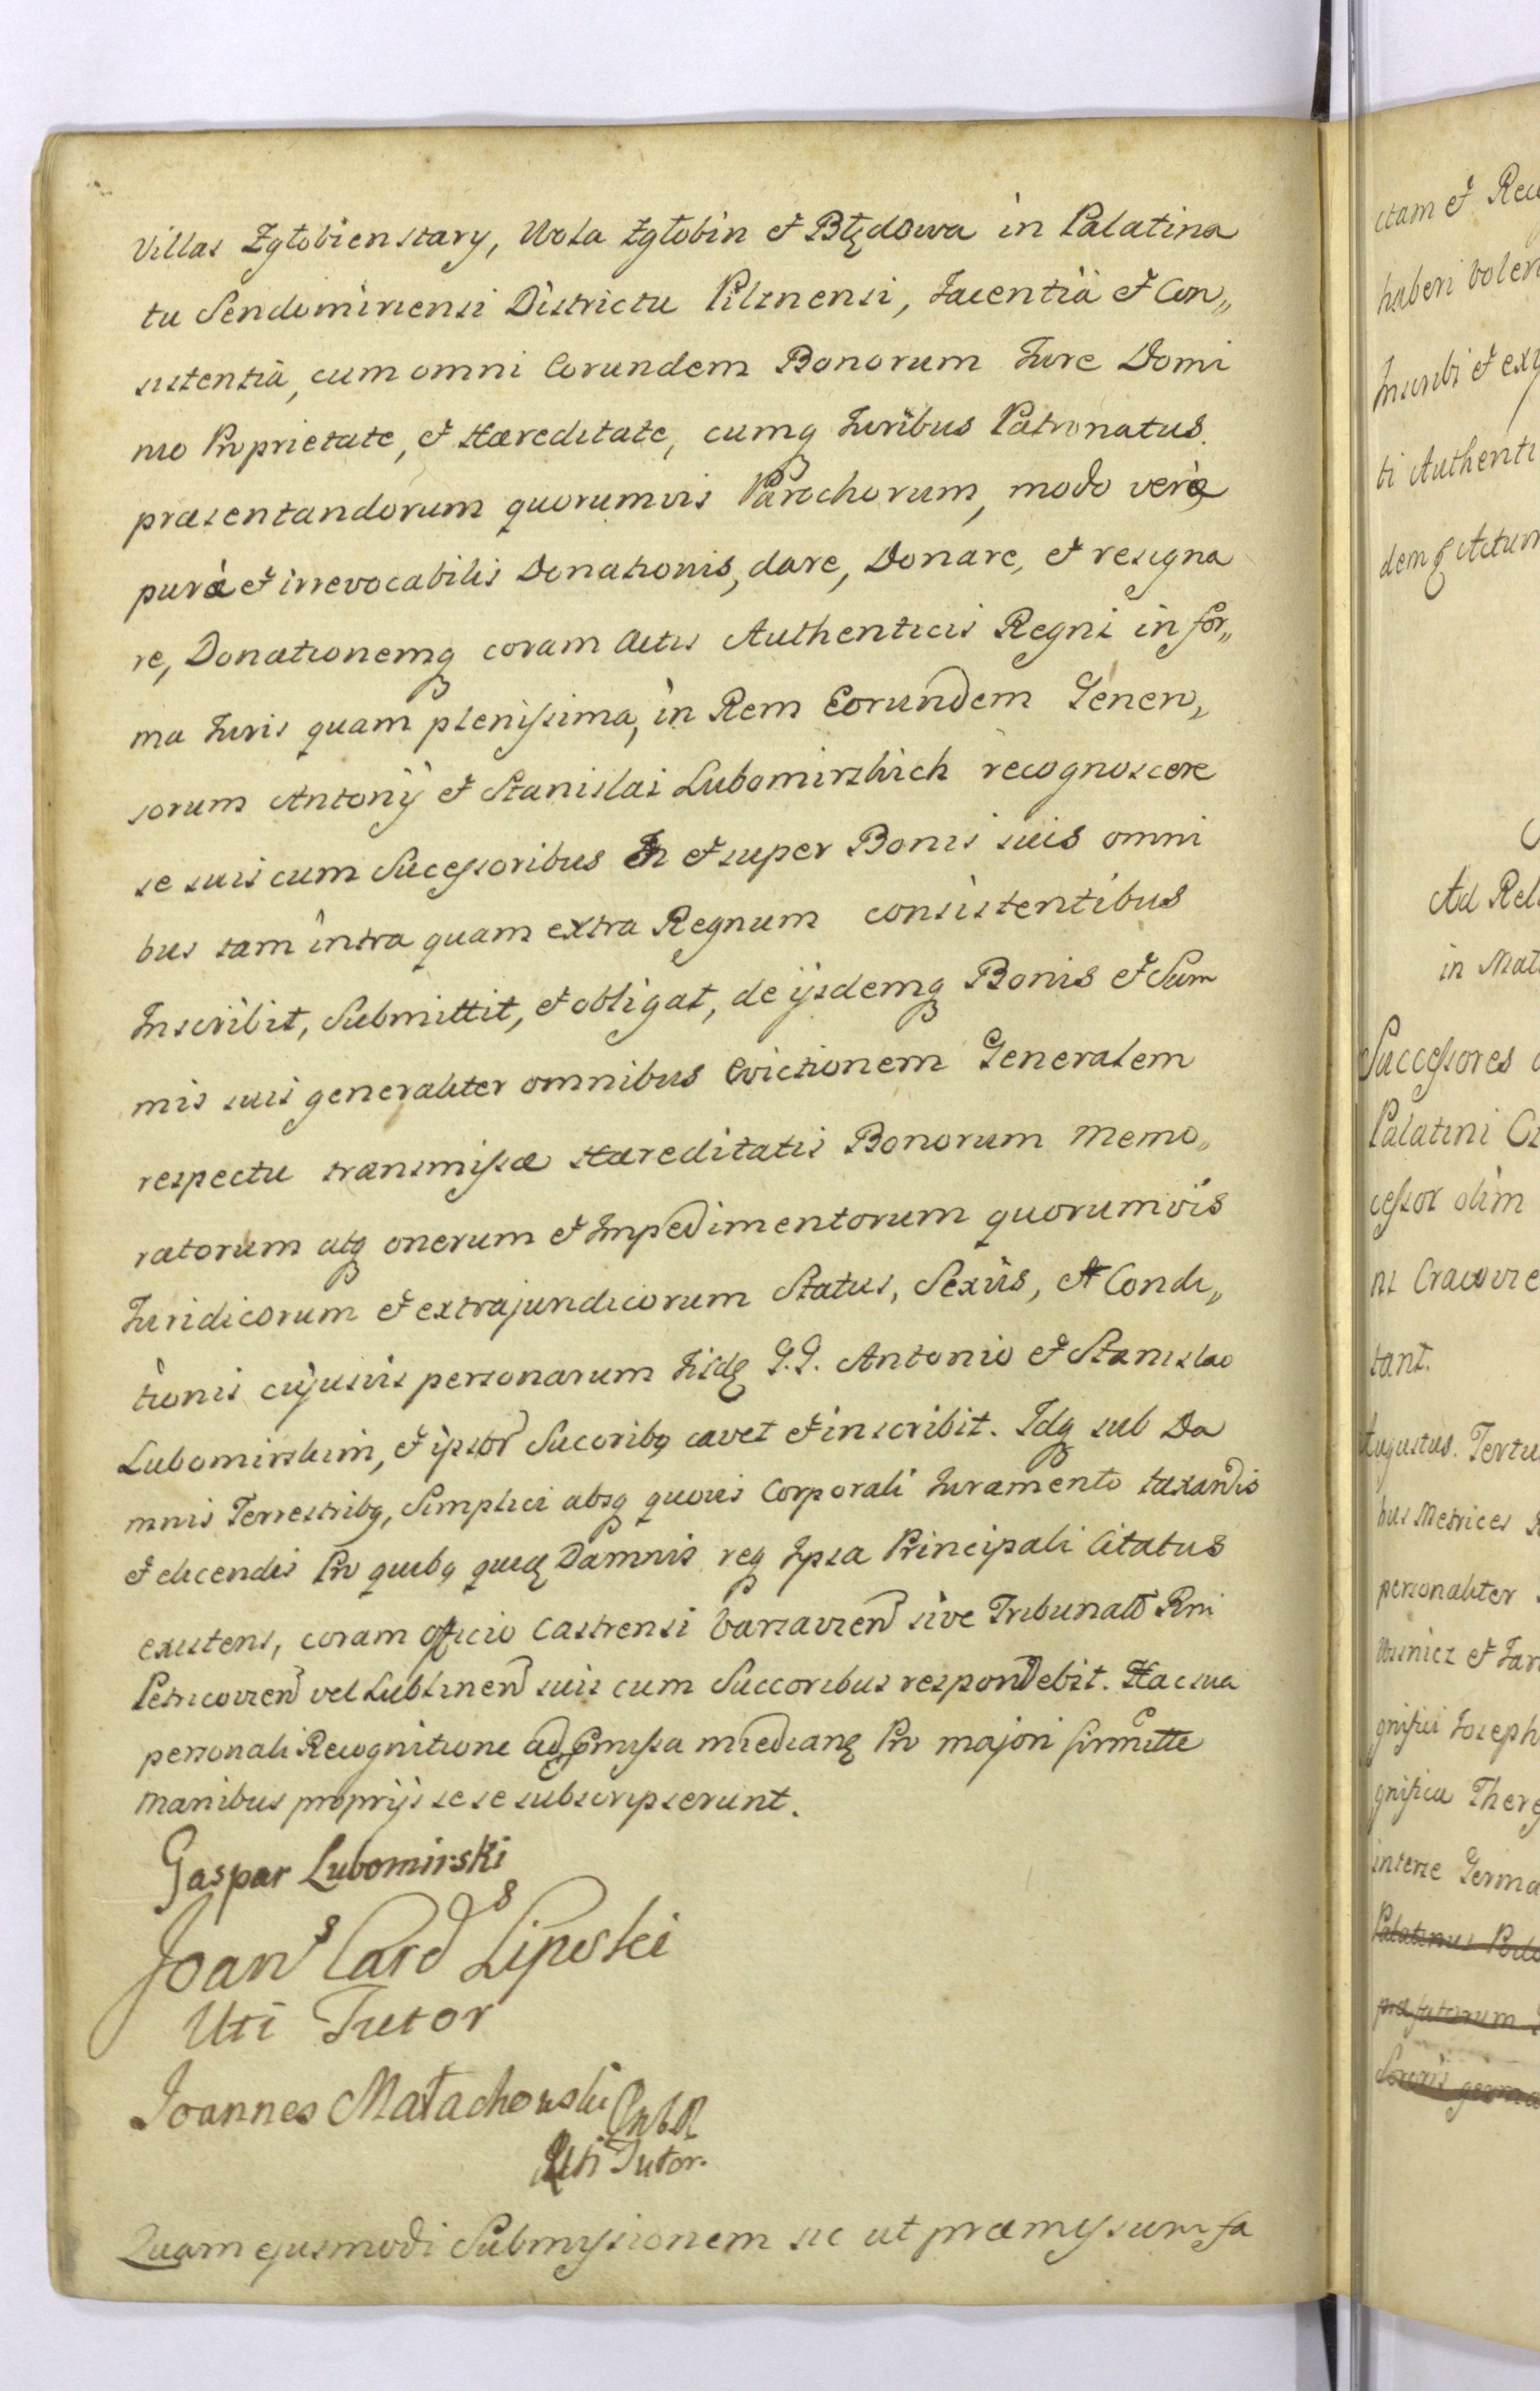 Villas Zgłobienstary, Wola Zgłobin et Błędowa in Palatina
tu Sendomiriensi Districtu Pilznensi, Jacentia et Con„
sistentia, cum omni Eorundem Bonorum Jure Domi
nio Proprietate, et Hæreditate, cumq Juribus Patronatus
præsentandorum quorumvis Parochorum, modo veræ
puræ et irrevocabilis Donationis, dare, Donare, et resigna
re, Donationemq coram Actis Authenticis Regni in for„
ma Juris quam plenissima, in Rem Eorundem Genero„
sorum Antonij et Stanislai Lubomirskich recognoscere
se suis cum Sucessoribus In et super Bonis suis omni
bus tam intra quam extra Regnum consistentibus
Inscribit, Submittit, et obligat, de ijsdemq Bonis et Sum
mis suis generaliter omnibus Evictionem Generalem
respectu transmissæ Hæreditatis Bonorum memo„
ratorum atq onerum et Impedimentorum quorumvis
Juridicorum et extrajuridicorum Status, Sexus, et Condi„
tionis cujusvis personarum Jisdq G.G. Antonio et Stanislao
Lubomirskim, et ipsor Sucoribq cavet et inscribit. Idq sub Da
mnis Terrestribq, Simplici absq quovis Corporali Juramento taxandis
et dicendis Pro quibq quidq Damnis req Ipsa Principali Citatus
existens, coram officio Castrensi Varsavien sive Tribunali Rni
Petricovien vel Lublinen suis cum Succoribus respondebit. Hac sua
personali Recognitione ad pmissa mediang Pro majori firmitte
manibus proprijs se se subscripserunt.
Gaspar Lubomirski
Joan s Card s Lipski
Uti Tutor
Joannes Małachowski
Uti Tutor.
Quam ejusmodi Submissionem sic ut præmissum fa
ctam et
haberi volen
Inscribi et
ti Authenti
demq Actum
Ad Rel
in Mat
Successores
Palatini
cessor olim
ni Cracovie
tant.
Augustus. Tertu
bus Metrices
personaliter
Wisnicz et Jar
gnifici Joseph
gnifica There
interse Germa
Palatinus Podo
præfatorum
Sororis germa